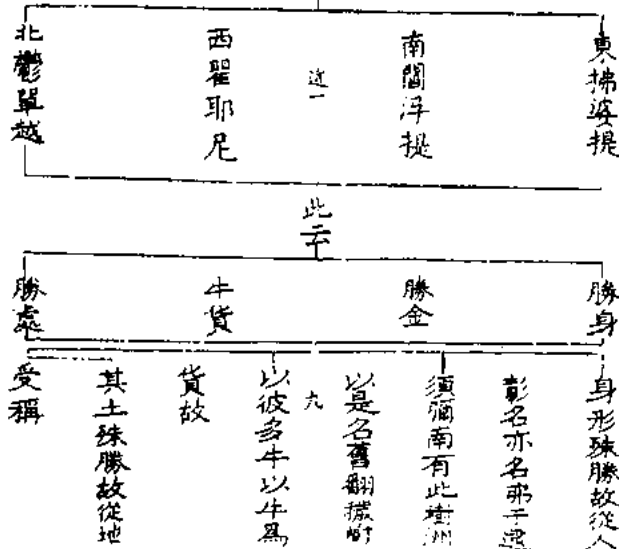 東拂婆提
南閻浮提
近一
西瞿耶尼
北鬱單越
此云
勝身
勝金
牛貨
勝處
身形殊勝故從人
彰名亦名弗于逮
須彌南有此樹洲
以是名舊翻穢樹
九
以彼多牛以牛為
貨故
其土殊勝故從地
受稱